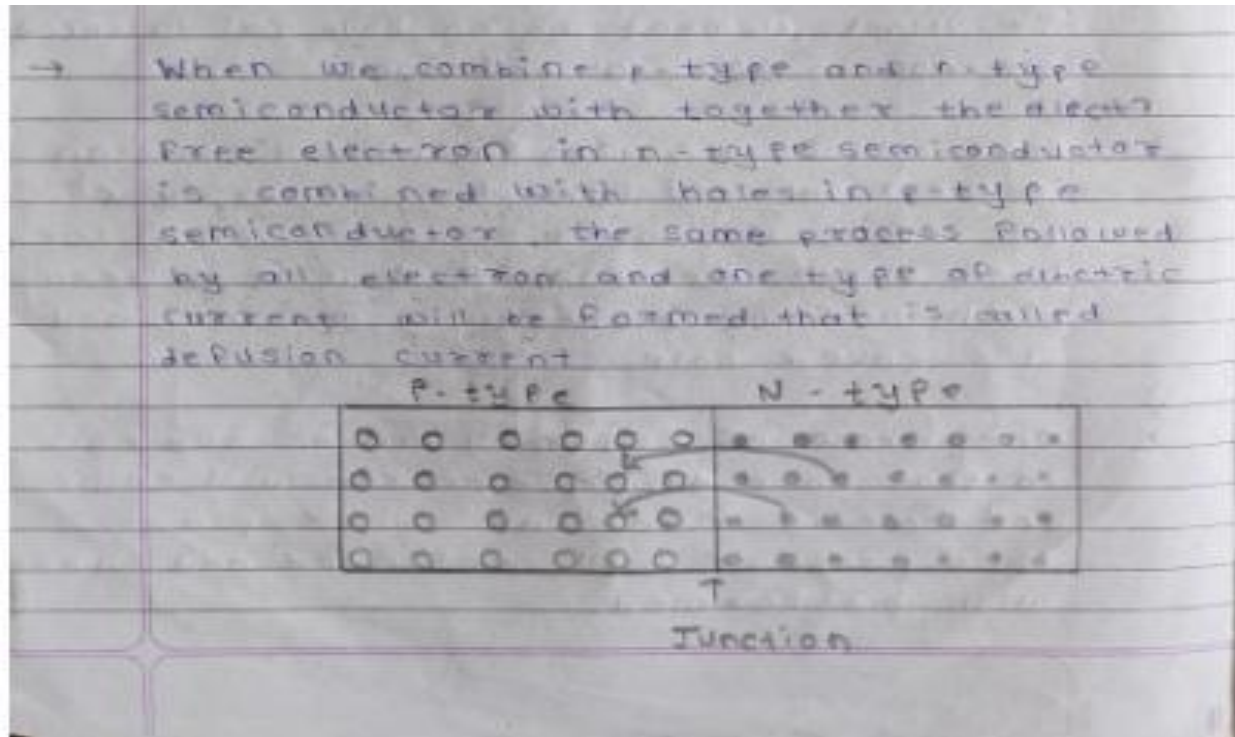 → When we combine p type and n type
semiconductor with together the
free electron in n-type semiconductor
is combined with holes in p-type
semiconductor the same process followed
by all electron and one type of
current will be formed that is called
defusion current
P-type N-type
↑
Junction